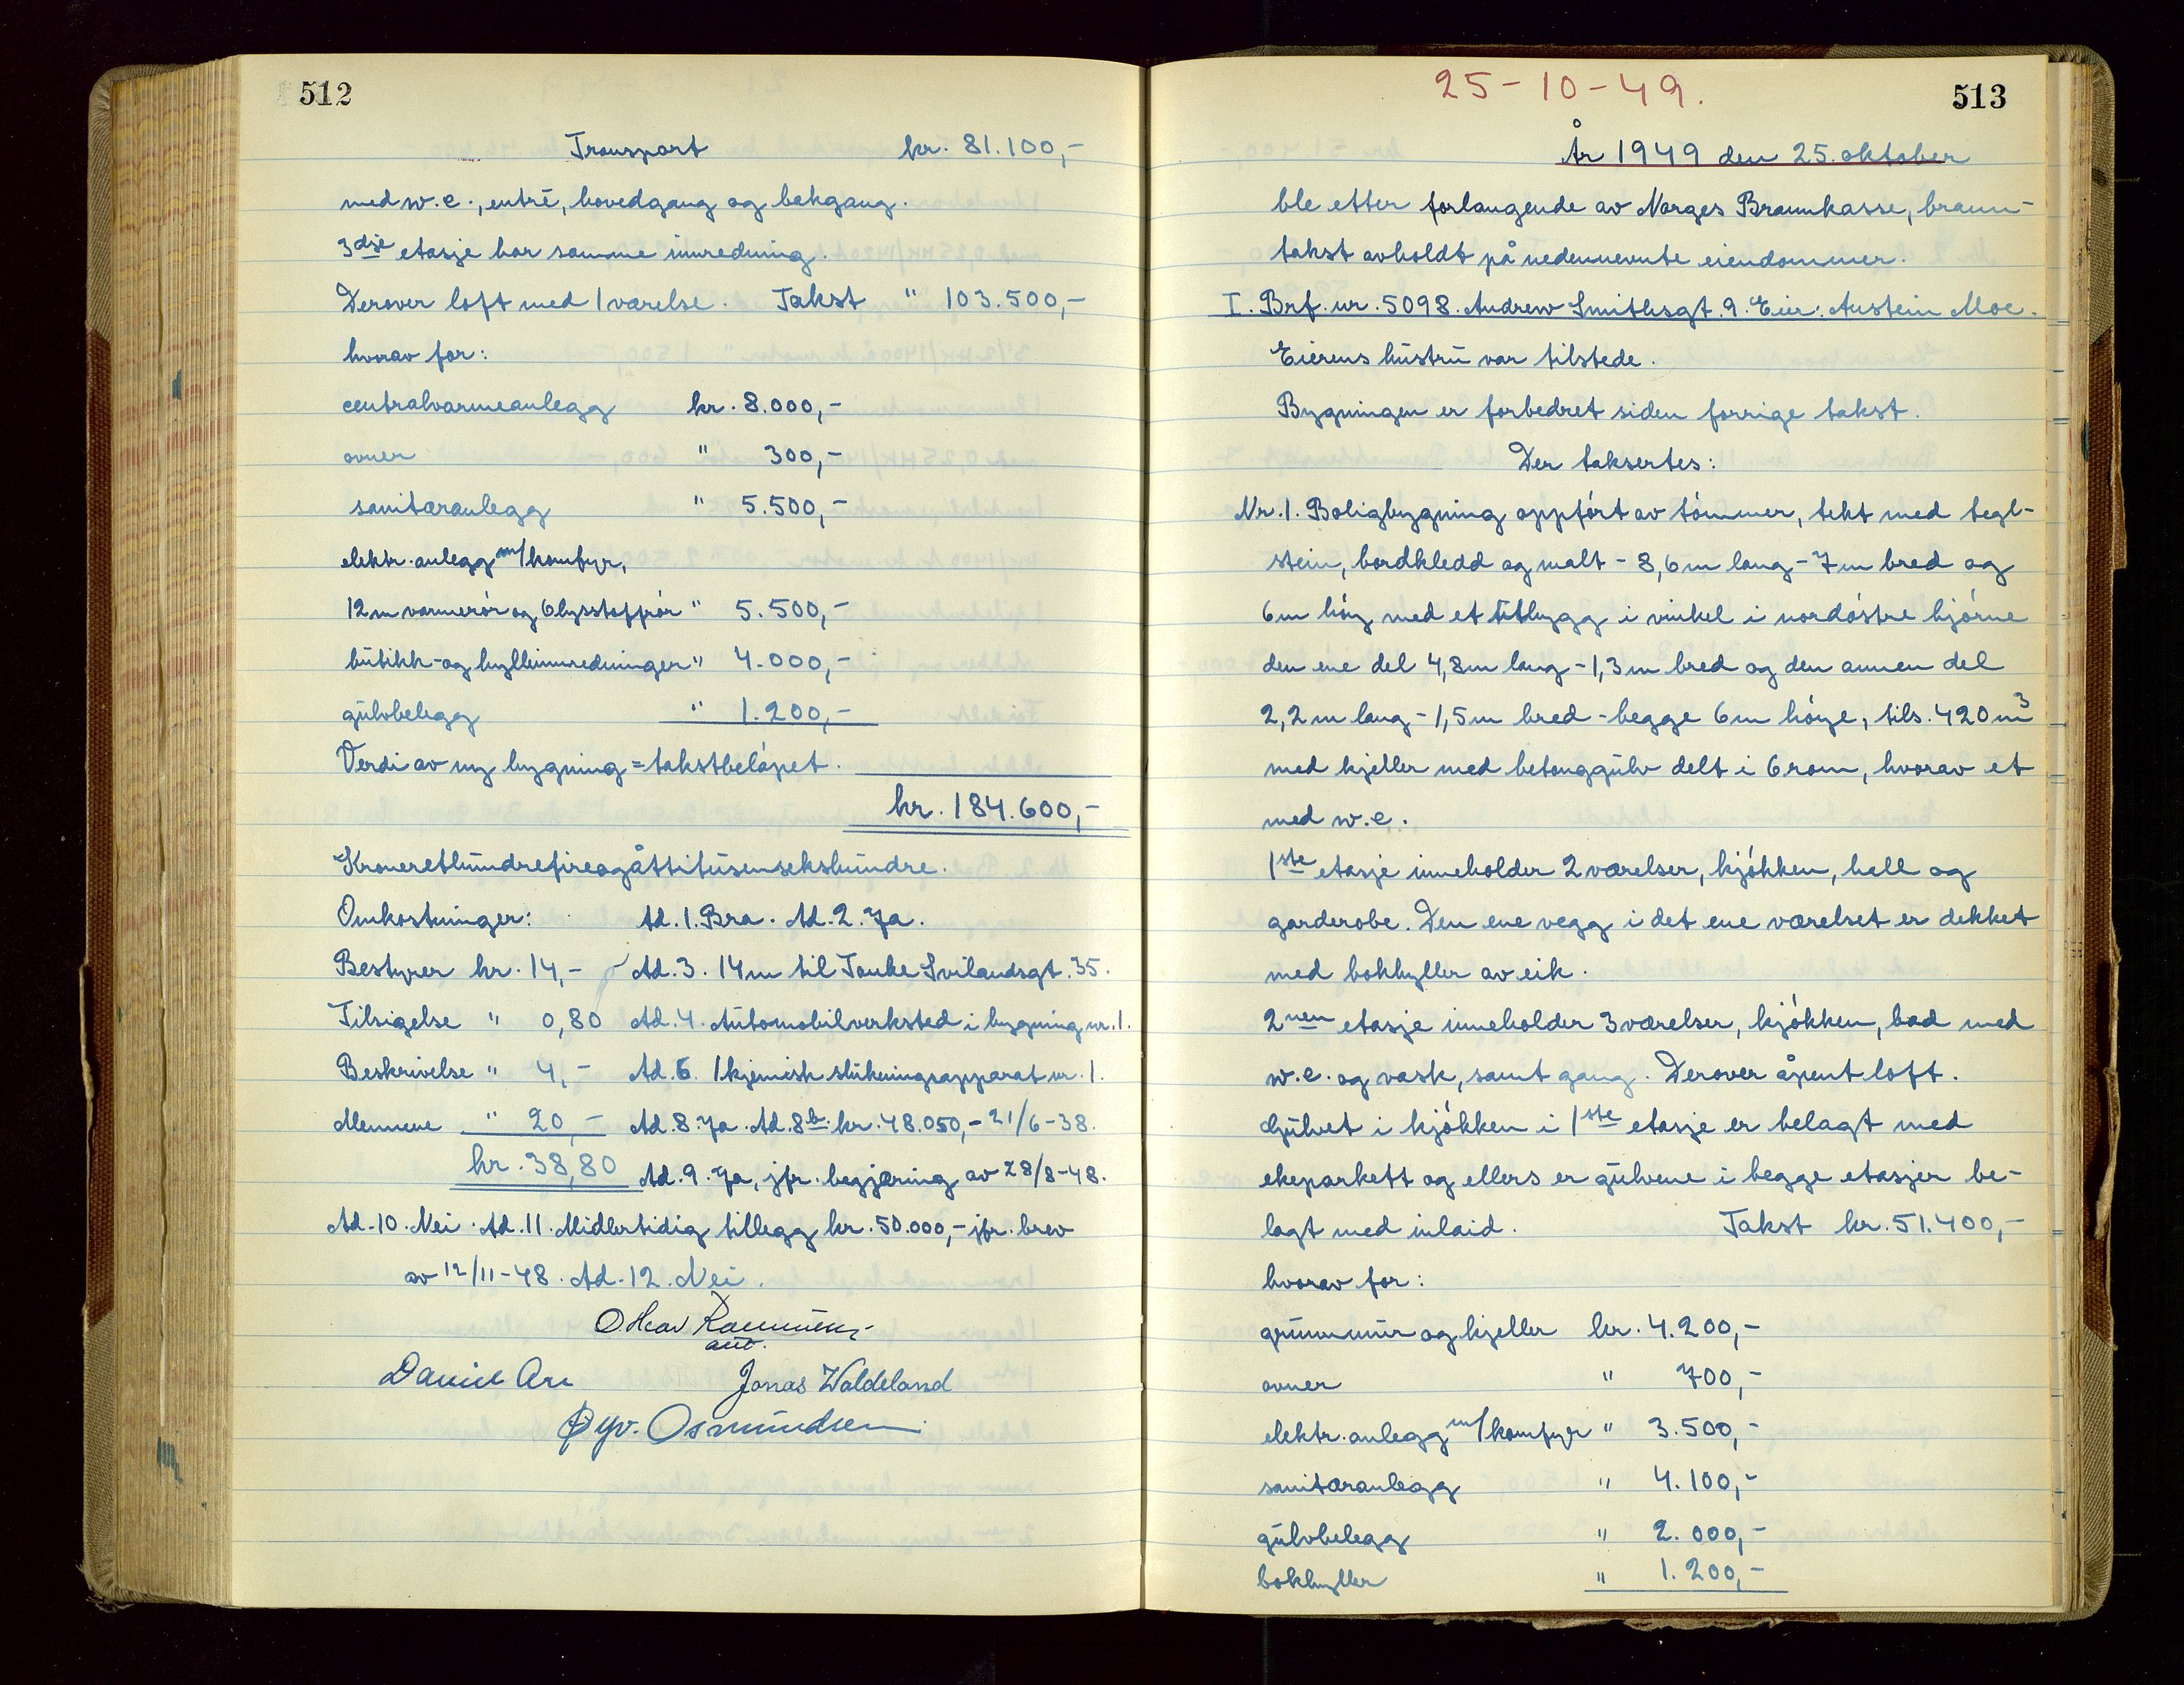 512
Transport kr. 81.100,-
med w.c., entré, hovedgang og bakgang.
3dje etasje har samme innredning.
Derover loft med 1 værelse. Takst " 103.500,-
hvorav for:
centralvarmeanlegg kr. 8.000,-
ovner " 300,-
sanitæranlegg " 5.500,-
elektr. anlegg m/komfyr,
12 m varmerør og 6 lysstoffrør " 5.500,-
butikk- og hylleinnredninger " 4.000,-
gulvbelegg " 1.200,-
Verdi av ny bygning = takstbeløpet.
kr. 184.600,-
Kronerethundrefireogåttitusensekshundre.
Omkostninger: Ad. 1. Bra. Ad. 2. Ja.
Bestyrer kr. 14,- Ad. 3. 14 m til Tanke Svilandsgt. 35.
Tilsigelse " 0,80 Ad. 4. Automobilverksted i bygning nr. 1.
Beskrivelse " 4,- Ad. 6. 1 kjemisk slukningsapparat nr. 1.
Mennene " 20,- Ad. 8. Ja. Ad. 8b. kr. 48.050,- 21/6-38.
kr. 38,80 Ad. 9. Ja, jfr. begjæring av 28/8-48.
Ad. 10. Nei. Ad. 11. Midlertidig tillegg kr. 50.000,- jfr. brev
av 12/11-48. Ad. 12. Nei.
aut.
Jonas Waldeland
Øyv. Osmundsen
25-10-49.
513
År 1949 den 25. oktober
ble etter forlangende av Norges Brannkasse, brann-
takst avholdt på nedennevnte eiendommer.
I. Brf. nr. 5098. Andrew Smithsgt. 9. Eier: Austein Moe.
Eierens hustru var tilstede.
Bygningen er forbedret siden forrige takst.
Der taksertes:
Nr. 1. Boligbygning oppført av tømmer, tekt med tegl-
stein, bordkledd og malt - 8,6 m lang - 7 m bred og
6 m høy med et tilbygg i vinkel i nordøstre hjørne
den ene del 4,8 m lang - 1,3 m bred og den annen del
2,2 m lang - 1,5 m bred - begge 6 m høye, tils. 420 m3
med kjeller med betonggulv delt i 6 rom, hvorav et
med w.c.
1ste etasje inneholder 2 værelser, kjøkken, hall og
garderobe. Den ene vegg i det ene værelset er dekket
med bokhyller av eik.
2nen etasje inneholder 3 værelser, kjøkken, bad med
w.c. og vask, samt gang. Derover åpent loft.
Gulvet i kjøkken i 1ste etasje er belagt med
ekeparkett og ellers er gulvene i begge etasjer be-
lagt med inlaid. Takst kr. 51.400,-
hvorav for:
grunnmur og kjeller kr. 4.200,-
ovner " 700,-
elektr. anlegg m/komfyr " 3.500,-
sanitæranlegg " 4.100,-
gulvbelegg " 2.000,-
bokhyller " 1.200,-